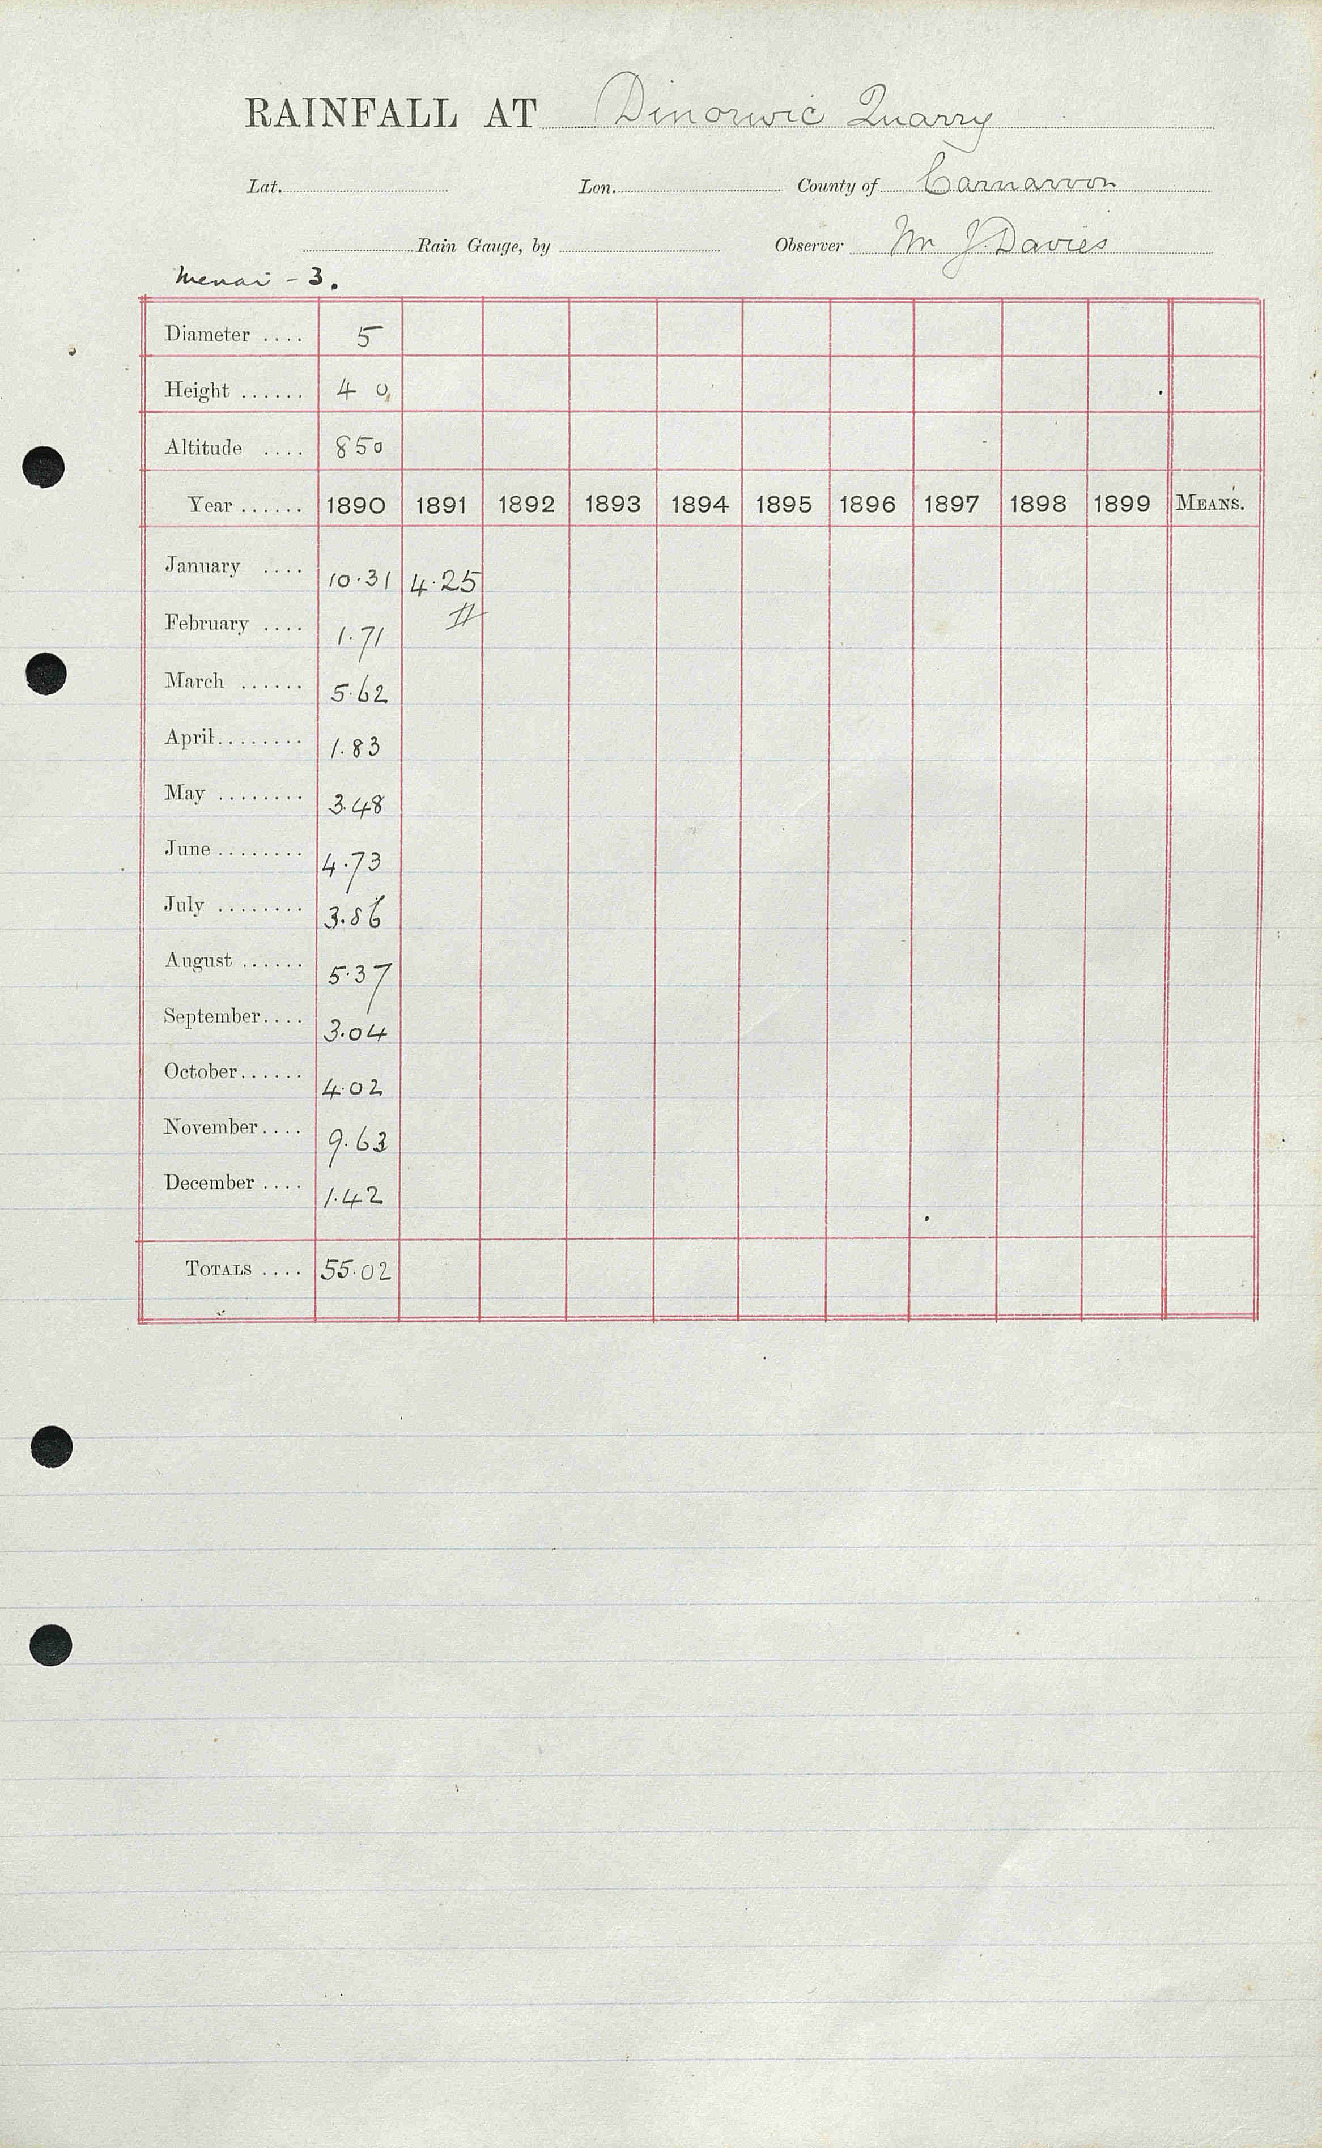 RAINFALL AT Dinorwic Quarry
Lat. Lon. County of Carnarvon
Rain Gauge, by Observer Mr J. Davies
Menai - 3.
Diameter .... 5
Height ...... 4 0
Altitude .... 850
Year ...... 1890 1891 1892 1893 1894 1895 1896 1897 1898 1899 MEANS.
January .... 10.31 4.25
February .... 1.71
March ...... 5.62
April........ 1.83
May ........ 3.48
June ........ 4.73
July ........ 3.86
August ...... 5.37
September.... 3.04
October...... 4.02
November.... 9.63
December .... 1.42
TOTALS .... 55.02